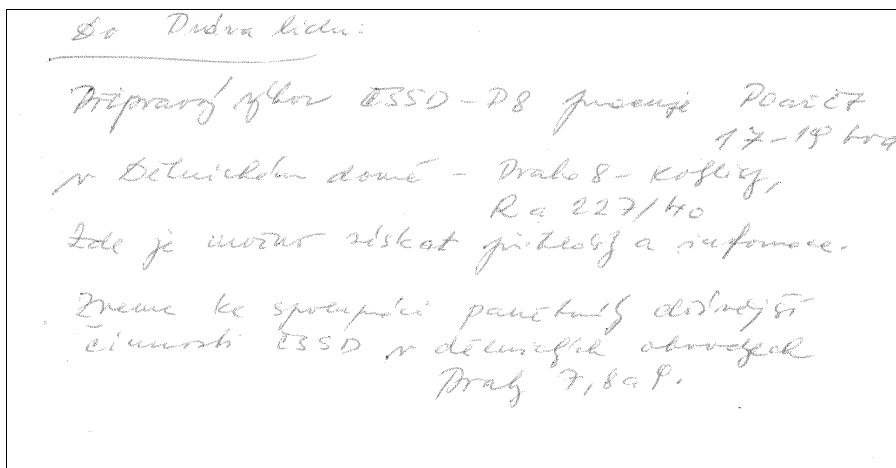 Do Práva lidu:
Přípravný výbor ČSSD-P8 pracuje
17-19 hod
v Dělnickém domě - Praha 8 - Kobylisy,
227/40
Zde je možno získat přihlášky a informace.
Zveme ke spolupráci pamětníky dřívější
činnosti ČSSD v dělnických obvodech
Prahy 7, 8 a 9.